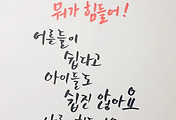 뭐가 힘들어!
어른들이
쉽다고
아이들도
쉽진 않아요